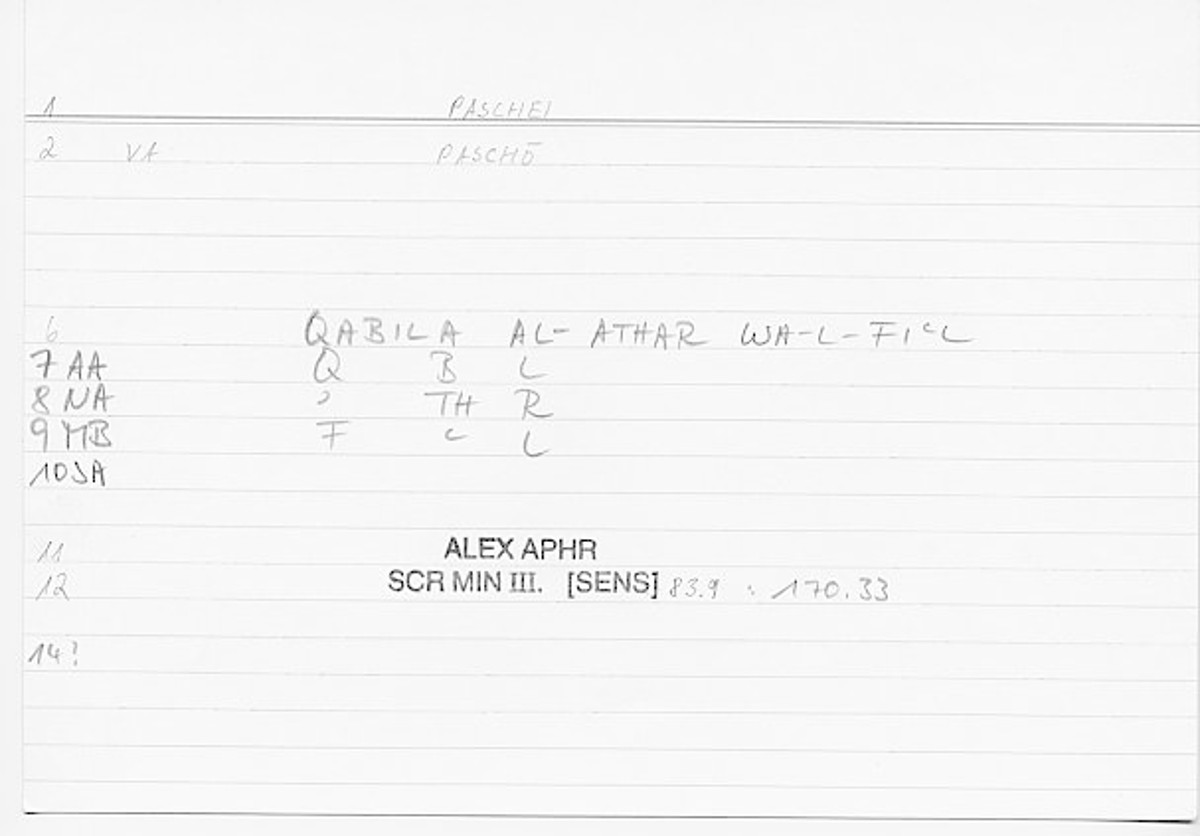 1 PASCHEI
2 VA PASCHŌ
6 QABILA AL-ATHAR WA-L-FIʿL
7 AA Q B L
8 NA ʾ TH R
9 MB F ʿ L
10 JA
11 ALEX APHR
12 SCR MIN III. [SENS] 83.9 : 170.33
14?